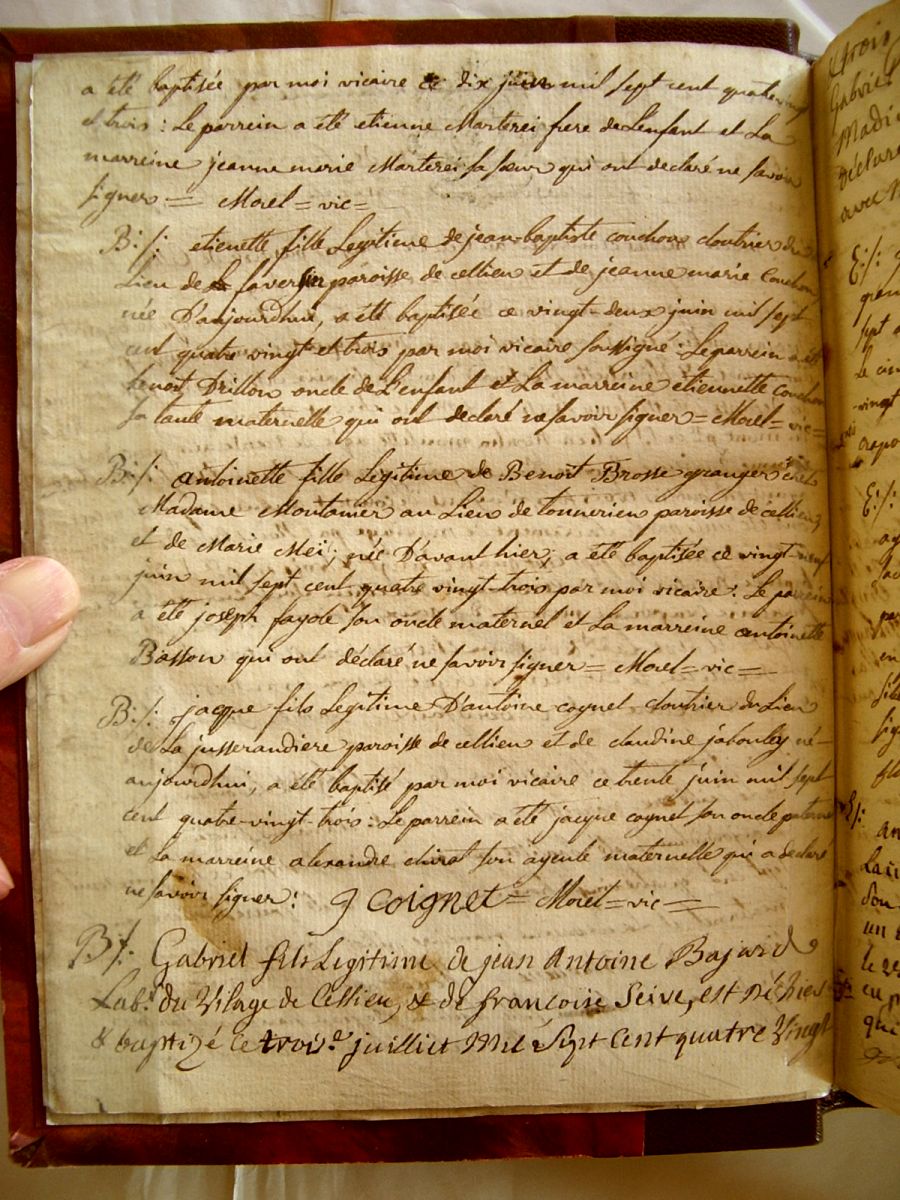 a été baptisée par moi vicaire ce dix juin mil sept cent quatrevingt
et trois : Le parrein a été etienne Marterei frere de Lenfant et La
marreine jeanne marie Marterei sa sœur qui ont declaré ne savoir
signer = Morel = vic =
B:/: etienette fille Legitime de jean-baptiste couchoux cloutier du
Lieu de paroisse de cellieu et de jeanne marie couchoux
née D'aujourdhui, a été baptisée ce vingt-deux juin mil sept
cent quatre vingt et trois par moi vicaire soussigné : Le parrein a été
benoit Drillon oncle de L'enfant et La marreine etiennette couchoux
sa tante maternelle qui ont declaré ne savoir signer = Morel = vic =
B:/: antoinette fille Legitime de Benoît Brosse granger chés
Madame Montanier au Lieu de tonnerieu paroisse de cellieu
et de Marie Meï; née D'avant hier, a été baptisée ce vingt neuf
juin mil sept cent quatre vingt-trois par moi vicaire : Le parrein
a été joseph fayole son oncle maternel et La marreine antoinette
Basson qui ont déclaré ne savoir signer = Morel = vic =
B:/: jacque fils Legitime D'antoine cognet cloutier du Lieu
de La jusserandiere paroisse de cellieu et de claudine jabouley né
aujourdhui, a été baptisé par moi vicaire ce trente juin mil sept
cent quatre-vingt-trois : Le parrein a été jacque cognet son oncle paternel
et La marreine alexandre chirat son ayeule maternelle qui a declaré
ne savoir signer : J Coignet = Morel = vic =
B/: Gabriel fils Legitime de jean Antoine Bajard
Lab.r du Vilage de Cellieu, & de francoise Seive, est né hier
& baptizé ce trois.e juilliet Mil Sept Cent quatre Vingt
trois
Gabriel
Madi
déclaré
avec
E:/:
sept
vingt
E:/:
en
E/:
un
qui